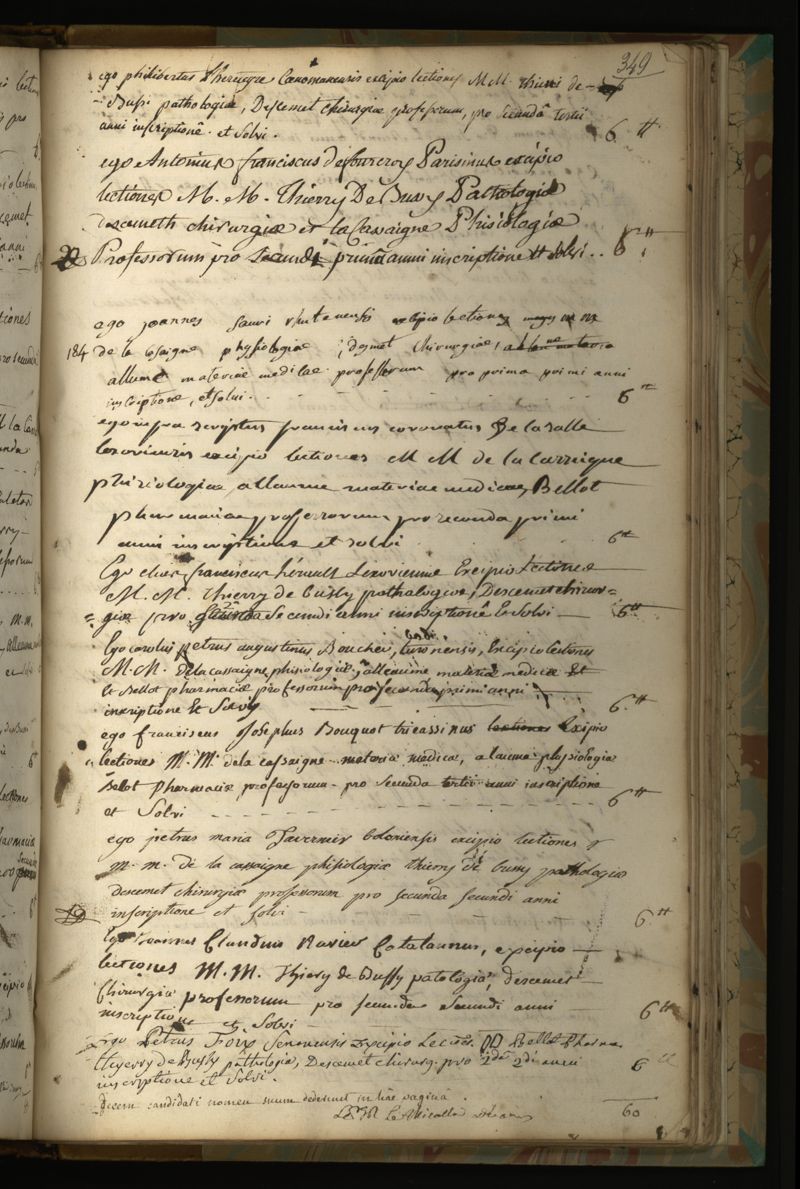 349
ego philibertus Cenomanensis excipio lectiones M.M. thieri de
Bussi pathologiæ, Descemet chirurgiæ professorum, pro secundâ tertii
anni inscriptione et solvi. 6 tt
ego Antonius franciscus defourcroy Parisinus excipio
lectiones M. M. Thierry De Bussy Pathologiæ
descemeth chirurgiæ et la Cassaigne Phisiologiæ
Professorum pro primi anni inscriptione et solvi .. 6 tt
ego joannes sauri rhutenensis excipio lectiones
184 de la Casaigne physiologiæ, desmet chirurgiæ,
allaume materiæ medicae professorum pro prima primi anni
insciptione, et solvi. 6 tt
ego infra scriptus franciscus coronatus De la salle
lexoviensis excipio lectiones M M de la Cassaigne
phisiologiæ, allaume materiae medicae, Bellot
pharmaciæ professorum pro secunda primi
anni inscriptione et solvi 6 tt
Ego franciscus hérault Lexoviensis Excipio Lectiones
M. M. Thierry de bussy pathologiæ, Descemet chirur=
=giæ pro secundi anni inscriptionê Et Solvi 6 tt
Ego carolus petrus augustinus Boucher, turonensis, Excipio lectiones
M.M. De la cassaigne phisiologiæ, alleaume materiæ medicæ Et
Et Bellot pharmaciæ professorum pro secunda primi anni
inscriptione Et Solvi 6 tt
ego franciscus Josephus Bouquot tricassinus lectiones Exipio
lectiones M. M. de la cassaigne materia medicæ, alaume physiologiæ
Bellot Pharmaciæ, professorum pro secunda tertii anni inscriptione
et Solvi 6 tt
ego petrus maria Tavernier boloniensis excipio lectiones
m. m. de la cassaigne phisiologiæ thierry de bussy pathologiæ
descemet chirurgiæ professorum pro secunda secundi anni
inscriptione et solvi 6 tt
Ego Joannes Claudius Ravier Catalaunus, excipio
lectiones M. M. Thiery de Bussy patologiæ, descemet
Chirurgiæ professorum pro secunda secundi anni
inscriptione et Solvi 6 tt
Ego Petrus Foix Senonensis Excipio Lectiones DD Bellot Pharma.
thyerry de Bussy pathologiæ, Descemet chirurg. pro 2da 2di anni 6 tt
inscriptione et solvi.
Decem candidati nomen suum dederunt in hac pagina. 60